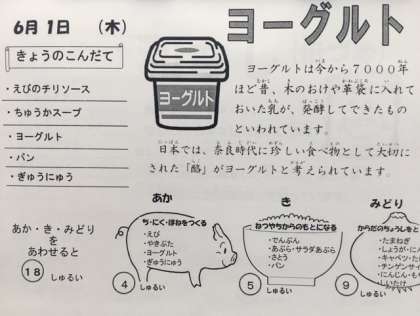 6月1日 （木）
きょうのこんだて
・えびのチリソース
・ちゅうかスープ
・ヨーグルト
・パン
・ぎゅうにゅう
ヨーグルト
ヨーグルト
ヨーグルトは今から7000年
ほど昔、木のおけや革袋に入れて
おいた乳が、発酵してできたもの
といわれています。
日本では、奈良時代に珍しい食べ物として大切に
された「酪」がヨーグルトと考えられています。
あか・き・みどり
を
あわせると
18 しゅるい
あか
ち・にく・ほねをつくる
・えび
・やきぶた
・ヨーグルト
・ぎゅうにゅう
4 しゅるい
き
ねつやちからのもとになる
・でんぷん
・あぶら・サラダあぶら
・さとう
・パン
5 しゅるい
みどり
からだのちょうしをと
・たまねぎ
・しょうが・に
・キャベツ・た
・チンゲンサイ
・にんじん・も
・しいたけ
9 しゅるい